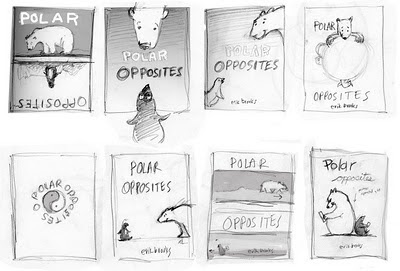 POLAR
OPPOSITES
POLAR
OPPOSITES
POLAR
OPPOSITES
erik brooks
POLAR
OPPOSITES
erik brooks
POLAR OPPOSITES
POLAR
OPPOSITES
erik brooks
POLAR
OPPOSITES
erik brooks
Polar
opposites
erik brooks